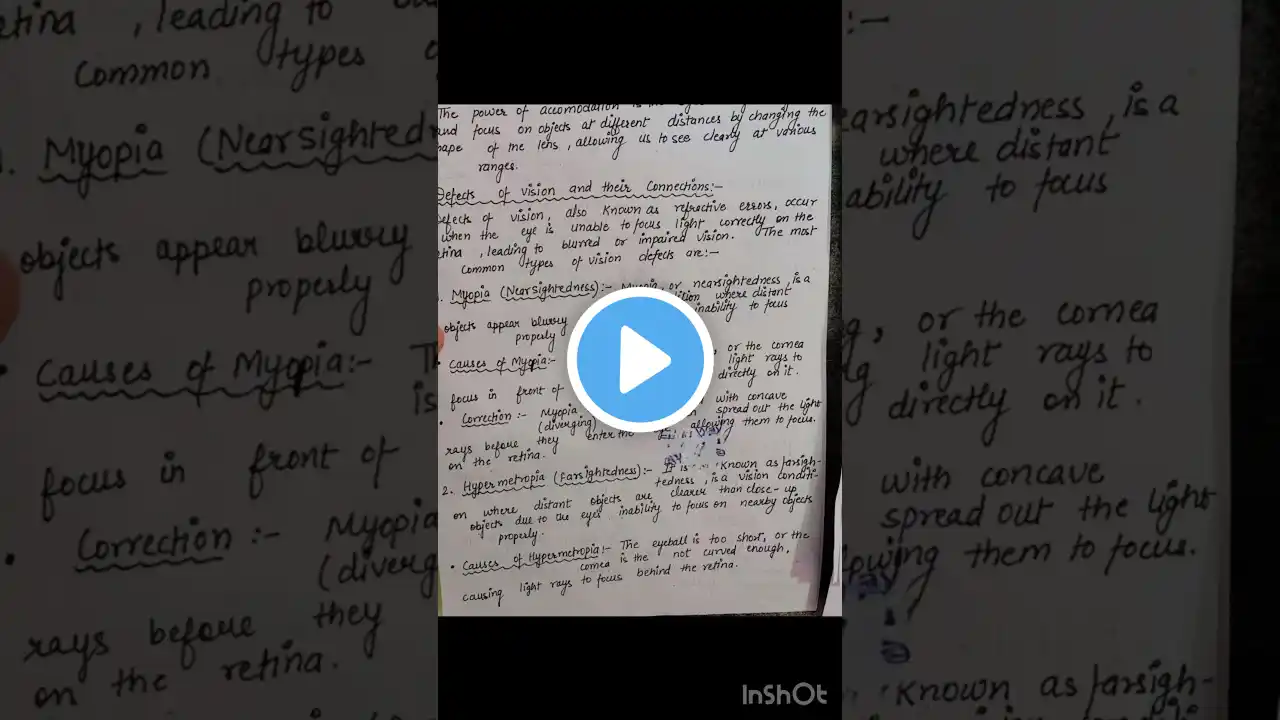 The power of accomodation is the
and focus on objects at different distances by changing the
of the lens, allowing us to see clearly at various
ranges.
Defects of vision and their Connections:-
of vision, also known as refractive errors, occur
when the eye is unable to focus light correctly on the
, leading to blurred or impaired vision. The most
Common types of vision defects are:-
Myopia (Nearsightedness):- Myopia, or nearsightedness, is a
where distant
objects appear blurry inability to focus
properly
• Causes of Myopia:- or the cornea
light rays to
focus in front of directly on it.
• Correction:- Myopia with concave
(diverging) spread out the light
rays before they enter the eye, allowing them to focus.
on the retina.
2. Hypermetropia (Farsightedness):- It is known as farsigh-
tedness, is a vision conditi-
on where distant objects are clearer than close-up
objects due to the eyes inability to focus on nearby objects
properly.
• Causes of Hypermetropia:- The eyeball is too short, or the
cornea is the not curved enough,
causing light rays to focus behind the retina.
InShOt